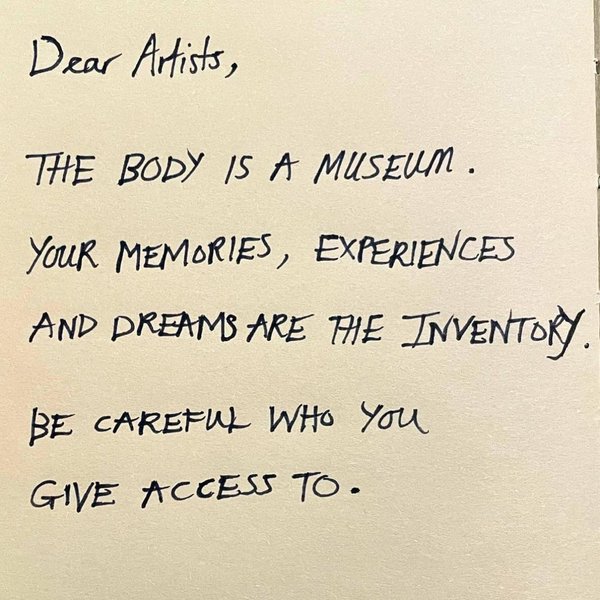 Dear Artists,
THE BODY IS A MUSEUM.
YOUR MEMORIES, EXPERIENCES
AND DREAMS ARE THE INVENTORY.
BE CAREFUL WHO YOU
GIVE ACCESS TO.